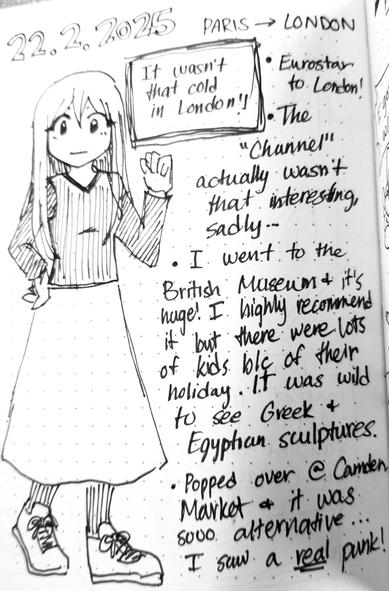 22.2.2025
PARIS → LONDON
It wasn't
that cold
in London!!
• Eurostar
to London!
• The
"Channel"
actually wasn't
that interesting,
sadly...
• I went to the
British Museum & it's
huge! I highly recommend
it but there were lots
of kids b/c of their
holiday. IT was wild
to see Greek &
Egyptian sculptures.
• Popped over @ Camden
Market & it was
sooo alternative...
I saw a real punk!